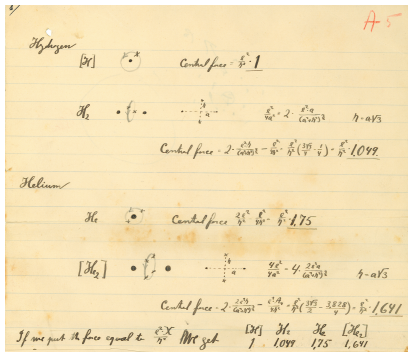 A-5
Hydrogen
[H] Central force = e²/r² · 1
H₂ e²/4a² = 2 · e²·a/(a²+r²)^(3/2) r = a√3
Central force = 2 · e²·r/(a²+r²)^(3/2) − e²/4r² = e²/r² (3√3/4 − 1/4) = e²/r² · 1,049
Helium
He Central force 2e²/r² − e²/4r² = e²/r² · 1,75
[He₂] 4e²/4a² = 4 · 2e²a/(a²+r²)^(3/2) r = a√3
Central force = 2 · e²/r² · 1,641
If we put the force equal to e²X/r² we get [H] H₂ He [He₂]
1 1,049 1,75 1,641